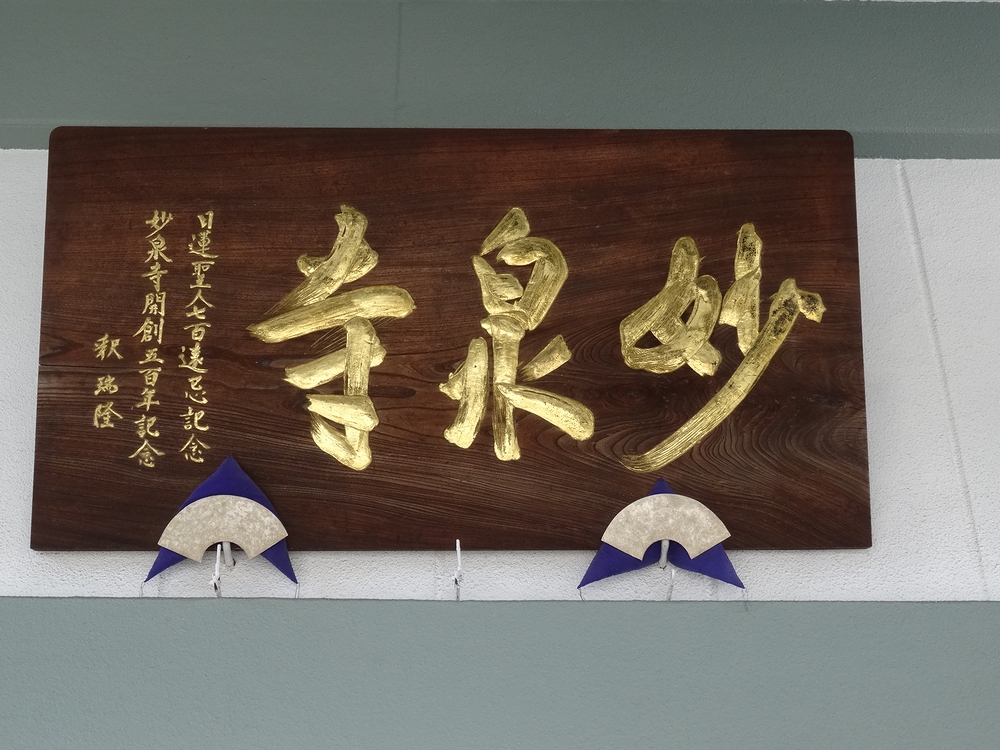 妙泉寺
日蓮聖人七百遠忌記念
妙泉寺開創五百年記念
釈瑞隆